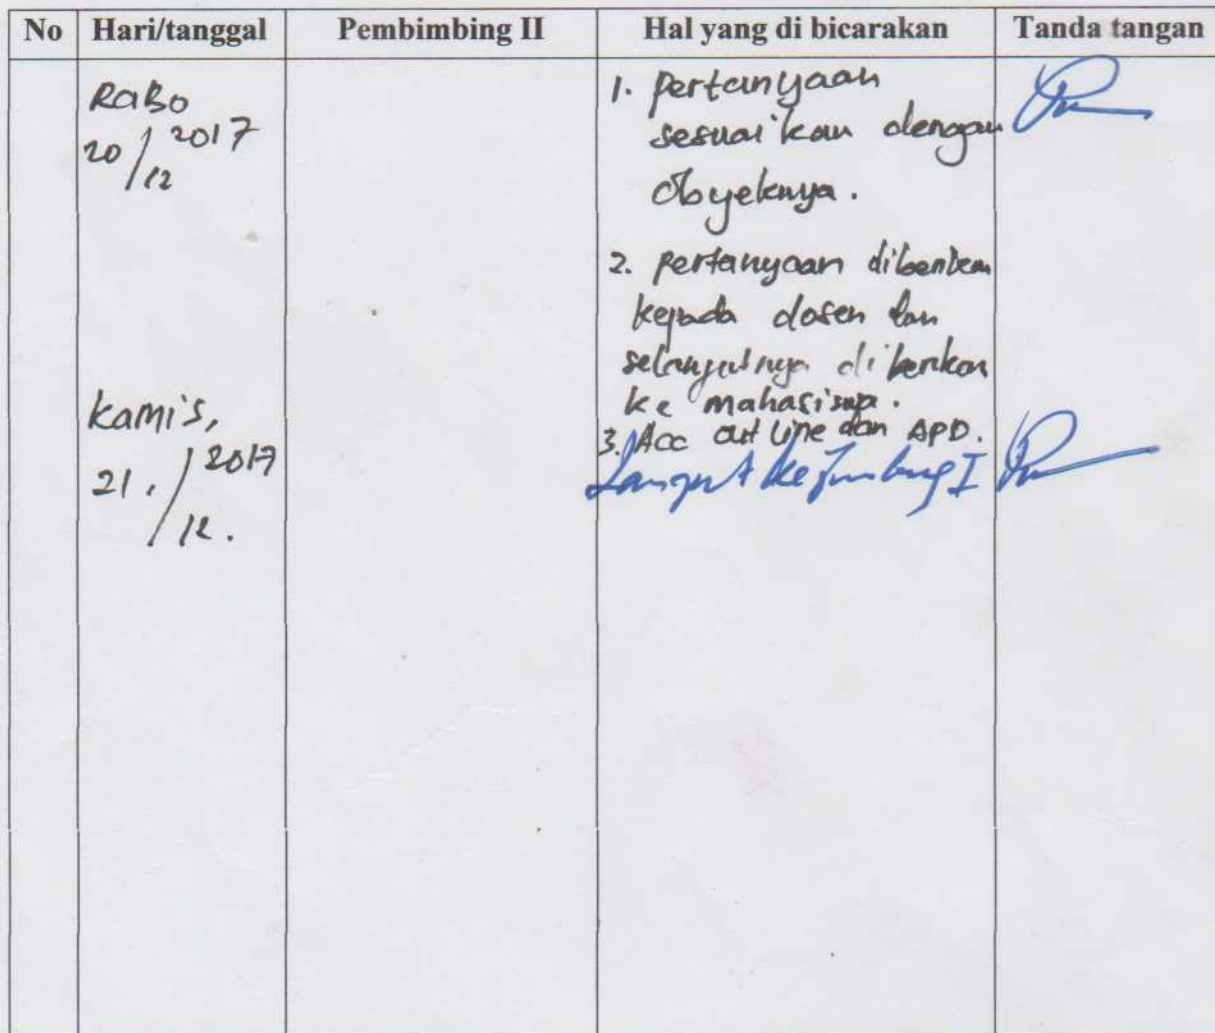 No Hari/tanggal Pembimbing II Hal yang di bicarakan Tanda tangan
RaBo
20/12 2017
1. Pertanyaan
sesuaikan dengan
Obyeknya.
2. pertanyaan diberikan
kepada dosen dan
selanjutnya diberikan
ke mahasiswa.
Kamis,
21./12. 2017
3. Acc out line dan APD.
Lanjut ke I